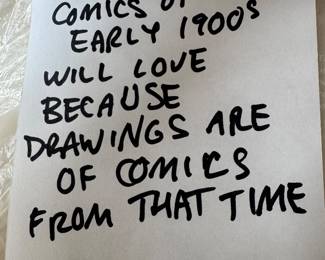 COMICS OF
EARLY 1900s
WILL LOVE
BECAUSE
DRAWINGS ARE
OF COMICS
FROM THAT TIME